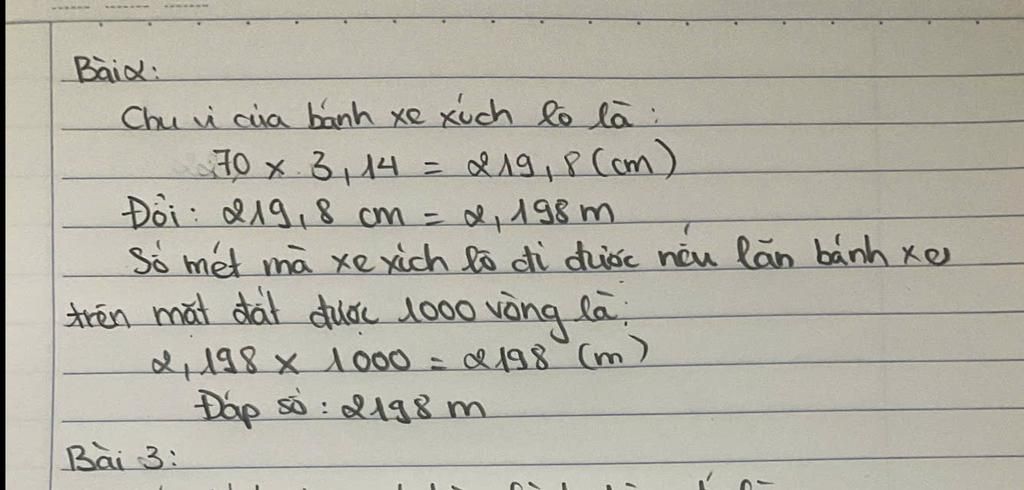 Bài 2:
Chu vi của bánh xe xích lô là:
70 x 3,14 = 219,8 (cm)
Đổi: 219,8 cm = 2,198 m
Số mét mà xe xích lô đi được nếu lăn bánh xe
trên mặt đất được 1000 vòng là:
2,198 x 1000 = 2198 (m)
Đáp số: 2198 m
Bài 3: